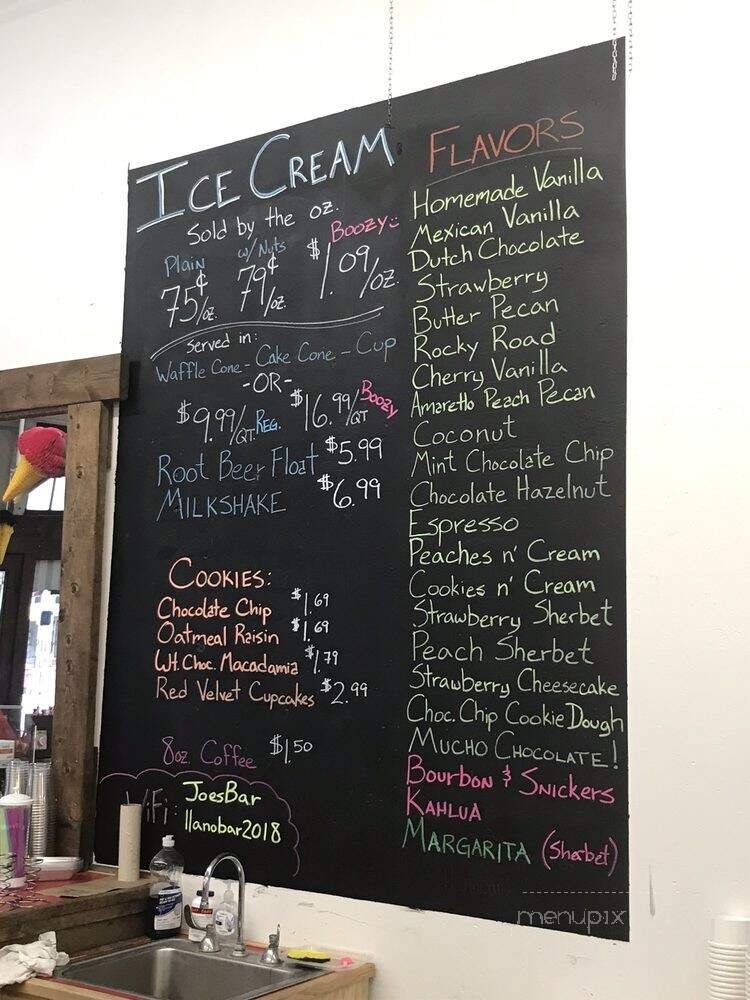 ICE CREAM
Sold by the oz.
Plain w/Nuts Boozy:)
75¢/oz. 79¢/oz. $1.09/oz.
Served in:
Waffle Cone - Cake Cone - Cup
-OR-
$9.99/QT. REG. $16.99/QT Boozy
Root Beer Float $5.99
MILKSHAKE $6.99
COOKIES:
Chocolate Chip $1.69
Oatmeal Raisin $1.69
Wt. Choc. Macadamia $1.79
Red Velvet Cupcakes $2.99
8oz. Coffee $1.50
WiFi: JoesBar
llanobar2018
FLAVORS
Homemade Vanilla
Mexican Vanilla
Dutch Chocolate
Strawberry
Butter Pecan
Rocky Road
Cherry Vanilla
Amaretto Peach Pecan
Coconut
Mint Chocolate Chip
Chocolate Hazelnut
Espresso
Peaches n' Cream
Cookies n' Cream
Strawberry Sherbet
Peach Sherbet
Strawberry Cheesecake
Choc. Chip Cookie Dough
MUCHO CHOCOLATE!
BOURBON & SNICKERS
KAHLUA
MARGARITA (Sherbet)
menupix